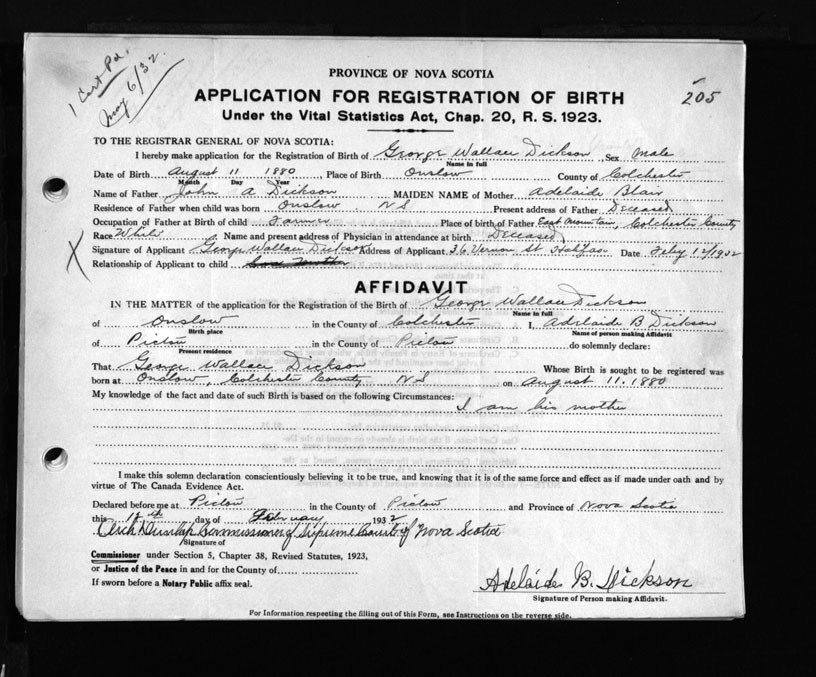 1 Cert Pd.
May 6/32.
205
PROVINCE OF NOVA SCOTIA
APPLICATION FOR REGISTRATION OF BIRTH
Under the Vital Statistics Act, Chap. 20, R. S. 1923.
TO THE REGISTRAR GENERAL OF NOVA SCOTIA:
I hereby make application for the Registration of Birth of George Wallace Dickson, Sex Male
Name in full
Date of Birth August 11 1880 Place of Birth Onslow County of Colchester
Month Day Year
Name of Father John A Dickson MAIDEN NAME of Mother Adelaide Blair
Residence of Father when child was born Onslow, N S Present address of Father Deceased
Occupation of Father at Birth of child Farmer Place of birth of Father East Mountain, Colchester County
Race White Name and present address of Physician in attendance at birth Deceased
X Signature of Applicant George Wallace Dickson Address of Applicant 36 Vernon St Halifax Date Feby 12/1932
Relationship of Applicant to child
AFFIDAVIT
IN THE MATTER of the application for the Registration of the Birth of George Wallace Dickson
Name in full
of Onslow in the County of Colchester I, Adelaide B Dickson
Birth place Name of person making Affidavit
of Pictou in the County of Pictou do solemnly declare:
Present residence
That George Wallace Dickson Whose Birth is sought to be registered was
born at Onslow, Colchester County N S on August 11. 1880
My knowledge of the fact and date of such Birth is based on the following Circumstances:
I am his mother
I make this solemn declaration conscientiously believing it to be true, and knowing that it is of the same force and effect as if made under oath and by
virtue of The Canada Evidence Act.
Declared before me at Pictou in the County of Pictou and Province of Nova Scotia
this day of February 1932
Dunlap Commissioner of Supreme Court of Nova Scotia
Signature of
Commissioner under Section 5, Chapter 38, Revised Statutes, 1923,
or Justice of the Peace in and for the County of
If sworn before a Notary Public affix seal.
Adelaide B. Dickson
Signature of Person making Affidavit.
For Information respecting the filling out of this Form, see Instructions on the reverse side.